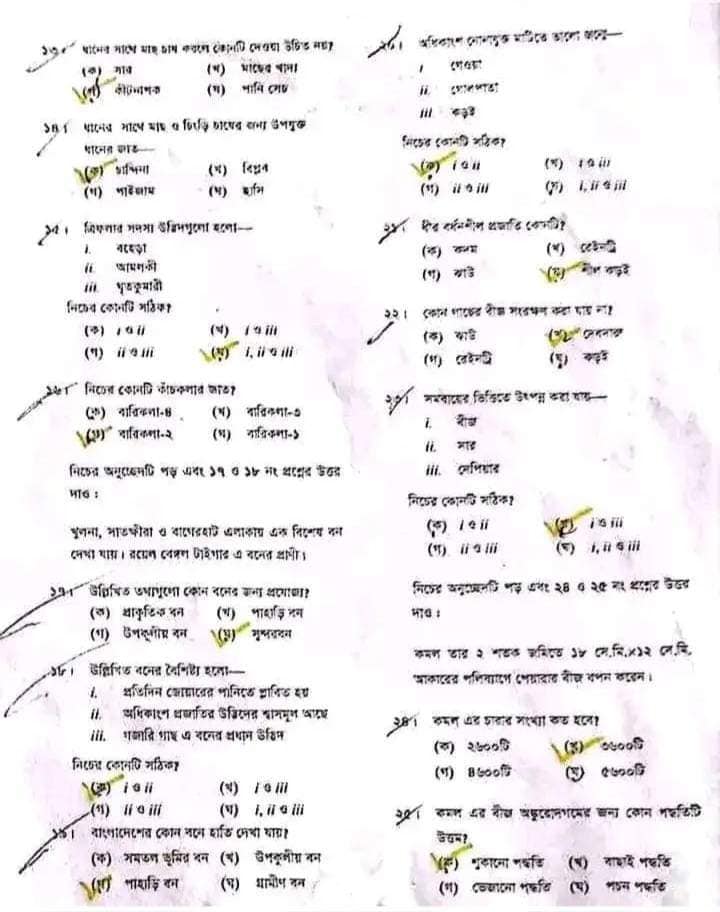 ১৩। ধানের সাথে মাছ চাষ করলে কোনটি দেওয়া উচিত নয়?
(ক) সার (খ) মাছের খাদ্য
(গ) কীটনাশক (ঘ) পানি সেচ
১৪। ধানের সাথে মাছ ও চিংড়ি চাষের জন্য উপযুক্ত
ধানের জাত—
(ক) চান্দিনা (খ) বিপ্লব
(গ) পাইজাম (ঘ) হাসি
১৫। ত্রিফলার সদস্য উদ্ভিদগুলো হলো—
i. বহেড়া
ii. আমলকী
iii. ঘৃতকুমারী
নিচের কোনটি সঠিক?
(ক) i ও ii (খ) i ও iii
(গ) ii ও iii (ঘ) i, ii ও iii
১৬। নিচের কোনটি কাঁচকলার জাত?
(ক) বারিকলা-৪ (খ) বারিকলা-৩
(গ) বারিকলা-২ (ঘ) বারিকলা-১
নিচের অনুচ্ছেদটি পড় এবং ১৭ ও ১৮ নং প্রশ্নের উত্তর
দাও :
খুলনা, সাতক্ষীরা ও বাগেরহাট এলাকায় এক বিশেষ বন
দেখা যায়। রয়েল বেঙ্গল টাইগার এ বনের প্রাণী।
১৭। উল্লিখিত তথ্যগুলো কোন বনের জন্য প্রযোজ্য?
(ক) প্রাকৃতিক বন (খ) পাহাড়ি বন
(গ) উপকূলীয় বন (ঘ) সুন্দরবন
১৮। উল্লিখিত বনের বৈশিষ্ট্য হলো—
i. প্রতিদিন জোয়ারের পানিতে প্লাবিত হয়
ii. অধিকাংশ প্রজাতির উদ্ভিদের শ্বাসমূল আছে
iii. গজারি গাছ এ বনের প্রধান উদ্ভিদ
নিচের কোনটি সঠিক?
(ক) i ও ii (খ) i ও iii
(গ) ii ও iii (ঘ) i, ii ও iii
১৯। বাংলাদেশের কোন বনে হাতি দেখা যায়?
(ক) সমতল ভূমির বন (খ) উপকূলীয় বন
(গ) পাহাড়ি বন (ঘ) গ্রামীণ বন
২০। অধিকাংশ লোনাযুক্ত মাটিতে ভালো জন্মে—
i গেওয়া
ii. গোলপাতা
iii কড়ই
নিচের কোনটি সঠিক?
(ক) i ও ii (খ) i ও iii
(গ) ii ও iii (ঘ) i, ii ও iii
২১। ধীর বর্ধনশীল প্রজাতি কোনটি?
(ক) কদম (খ) রেইনট্রি
(গ) ঝাউ (ঘ) শীল কড়ই
২২। কোন গাছের বীজ সংরক্ষণ করা যায় না?
(ক) ঝাউ (খ) দেবদারু
(গ) রেইনট্রি (ঘ) কড়ই
২৩। সমবায়ের ভিত্তিতে উৎপন্ন করা যায়—
i. বীজ
ii. সার
iii. নেপিয়ার
নিচের কোনটি সঠিক?
(ক) i ও ii (খ) i ও iii
(গ) ii ও iii (ঘ) i, ii ও iii
নিচের অনুচ্ছেদটি পড় এবং ২৪ ও ২৫ নং প্রশ্নের উত্তর
দাও :
কমল তার ২ শতক জমিতে ১৮ সে.মি.×১২ সে.মি.
আকারের পলিব্যাগে পেয়ারার বীজ বপন করেন।
২৪। কমল এর চারার সংখ্যা কত হবে?
(ক) ২৬০০টি (খ) ৩৬০০টি
(গ) ৪৬০০টি (ঘ) ৫৬০০টি
২৫। কমল এর বীজ অঙ্কুরোদগমের জন্য কোন পদ্ধতিটি
উত্তম?
(ক) শুকানো পদ্ধতি (খ) বাছাই পদ্ধতি
(গ) ভেজানো পদ্ধতি (ঘ) পচন পদ্ধতি